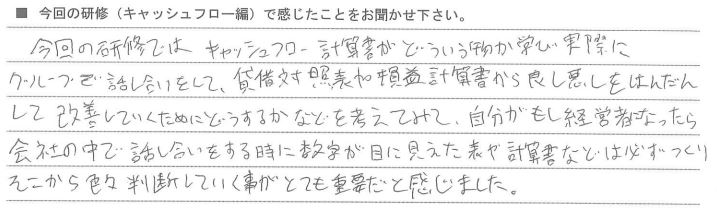 ■ 今回の研修（キャッシュフロー編）で感じたことをお聞かせ下さい。
今回の研修では キャッシュフロー計算書がどういう物か学び 実際に
グループで話し合いをして、貸借対照表や損益計算書から良し悪しをはんだん
して 改善していくためにどうするかなどを考えてみて、自分がもし経営者になったら
会社の中で話し合いをする時に数字が目に見えた表や計算書などは必ずつくり
そこから色々判断していく事がとても重要だと感じました。